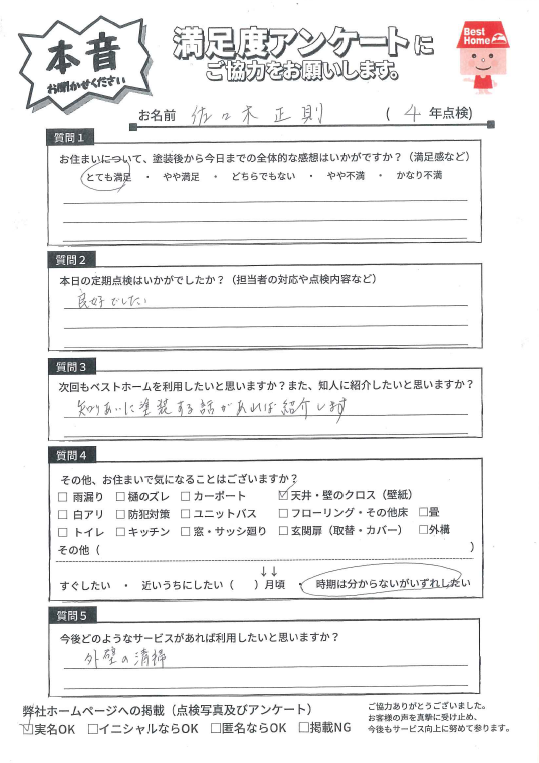 本音
お聞かせください
満足度アンケートに
ご協力をお願いします。
Best Home
お名前 佐々木 正則 ( 4 年点検)
質問1
お住まいについて、塗装後から今日までの全体的な感想はいかがですか？（満足感など）
とても満足 ・ やや満足 ・ どちらでもない ・ やや不満 ・ かなり不満
質問2
本日の定期点検はいかがでしたか？（担当者の対応や点検内容など）
良好でした
質問3
次回もベストホームを利用したいと思いますか？また、知人に紹介したいと思いますか？
知りあいに塗装する話があれば紹介します
質問4
その他、お住まいで気になることはございますか？
□ 雨漏り □ 樋のズレ □ カーポート ☑ 天井・壁のクロス（壁紙）
□ 白アリ □ 防犯対策 □ ユニットバス □ フローリング・その他床 □畳
□ トイレ □ キッチン □ 窓・サッシ廻り □ 玄関扉（取替・カバー） □外構
その他（ ）
↓↓
すぐしたい ・ 近いうちにしたい（ ）月頃 ・ 時期は分からないがいずれしたい
質問5
今後どのようなサービスがあれば利用したいと思いますか？
外壁の清掃
弊社ホームページへの掲載（点検写真及びアンケート）
☑実名OK □イニシャルならOK □匿名ならOK □掲載NG
ご協力ありがとうございました。
お客様の声を真摯に受け止め、
今後もサービス向上に努めて参ります。